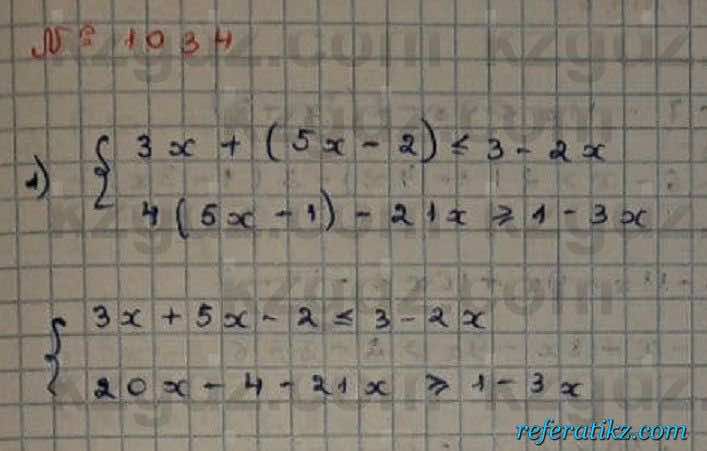 № 1034
1) { 3x + (5x - 2) ≤ 3 - 2x
4(5x - 1) - 21x ≥ 1 - 3x
{ 3x + 5x - 2 ≤ 3 - 2x
20x - 4 - 21x ≥ 1 - 3x
referatikz.com